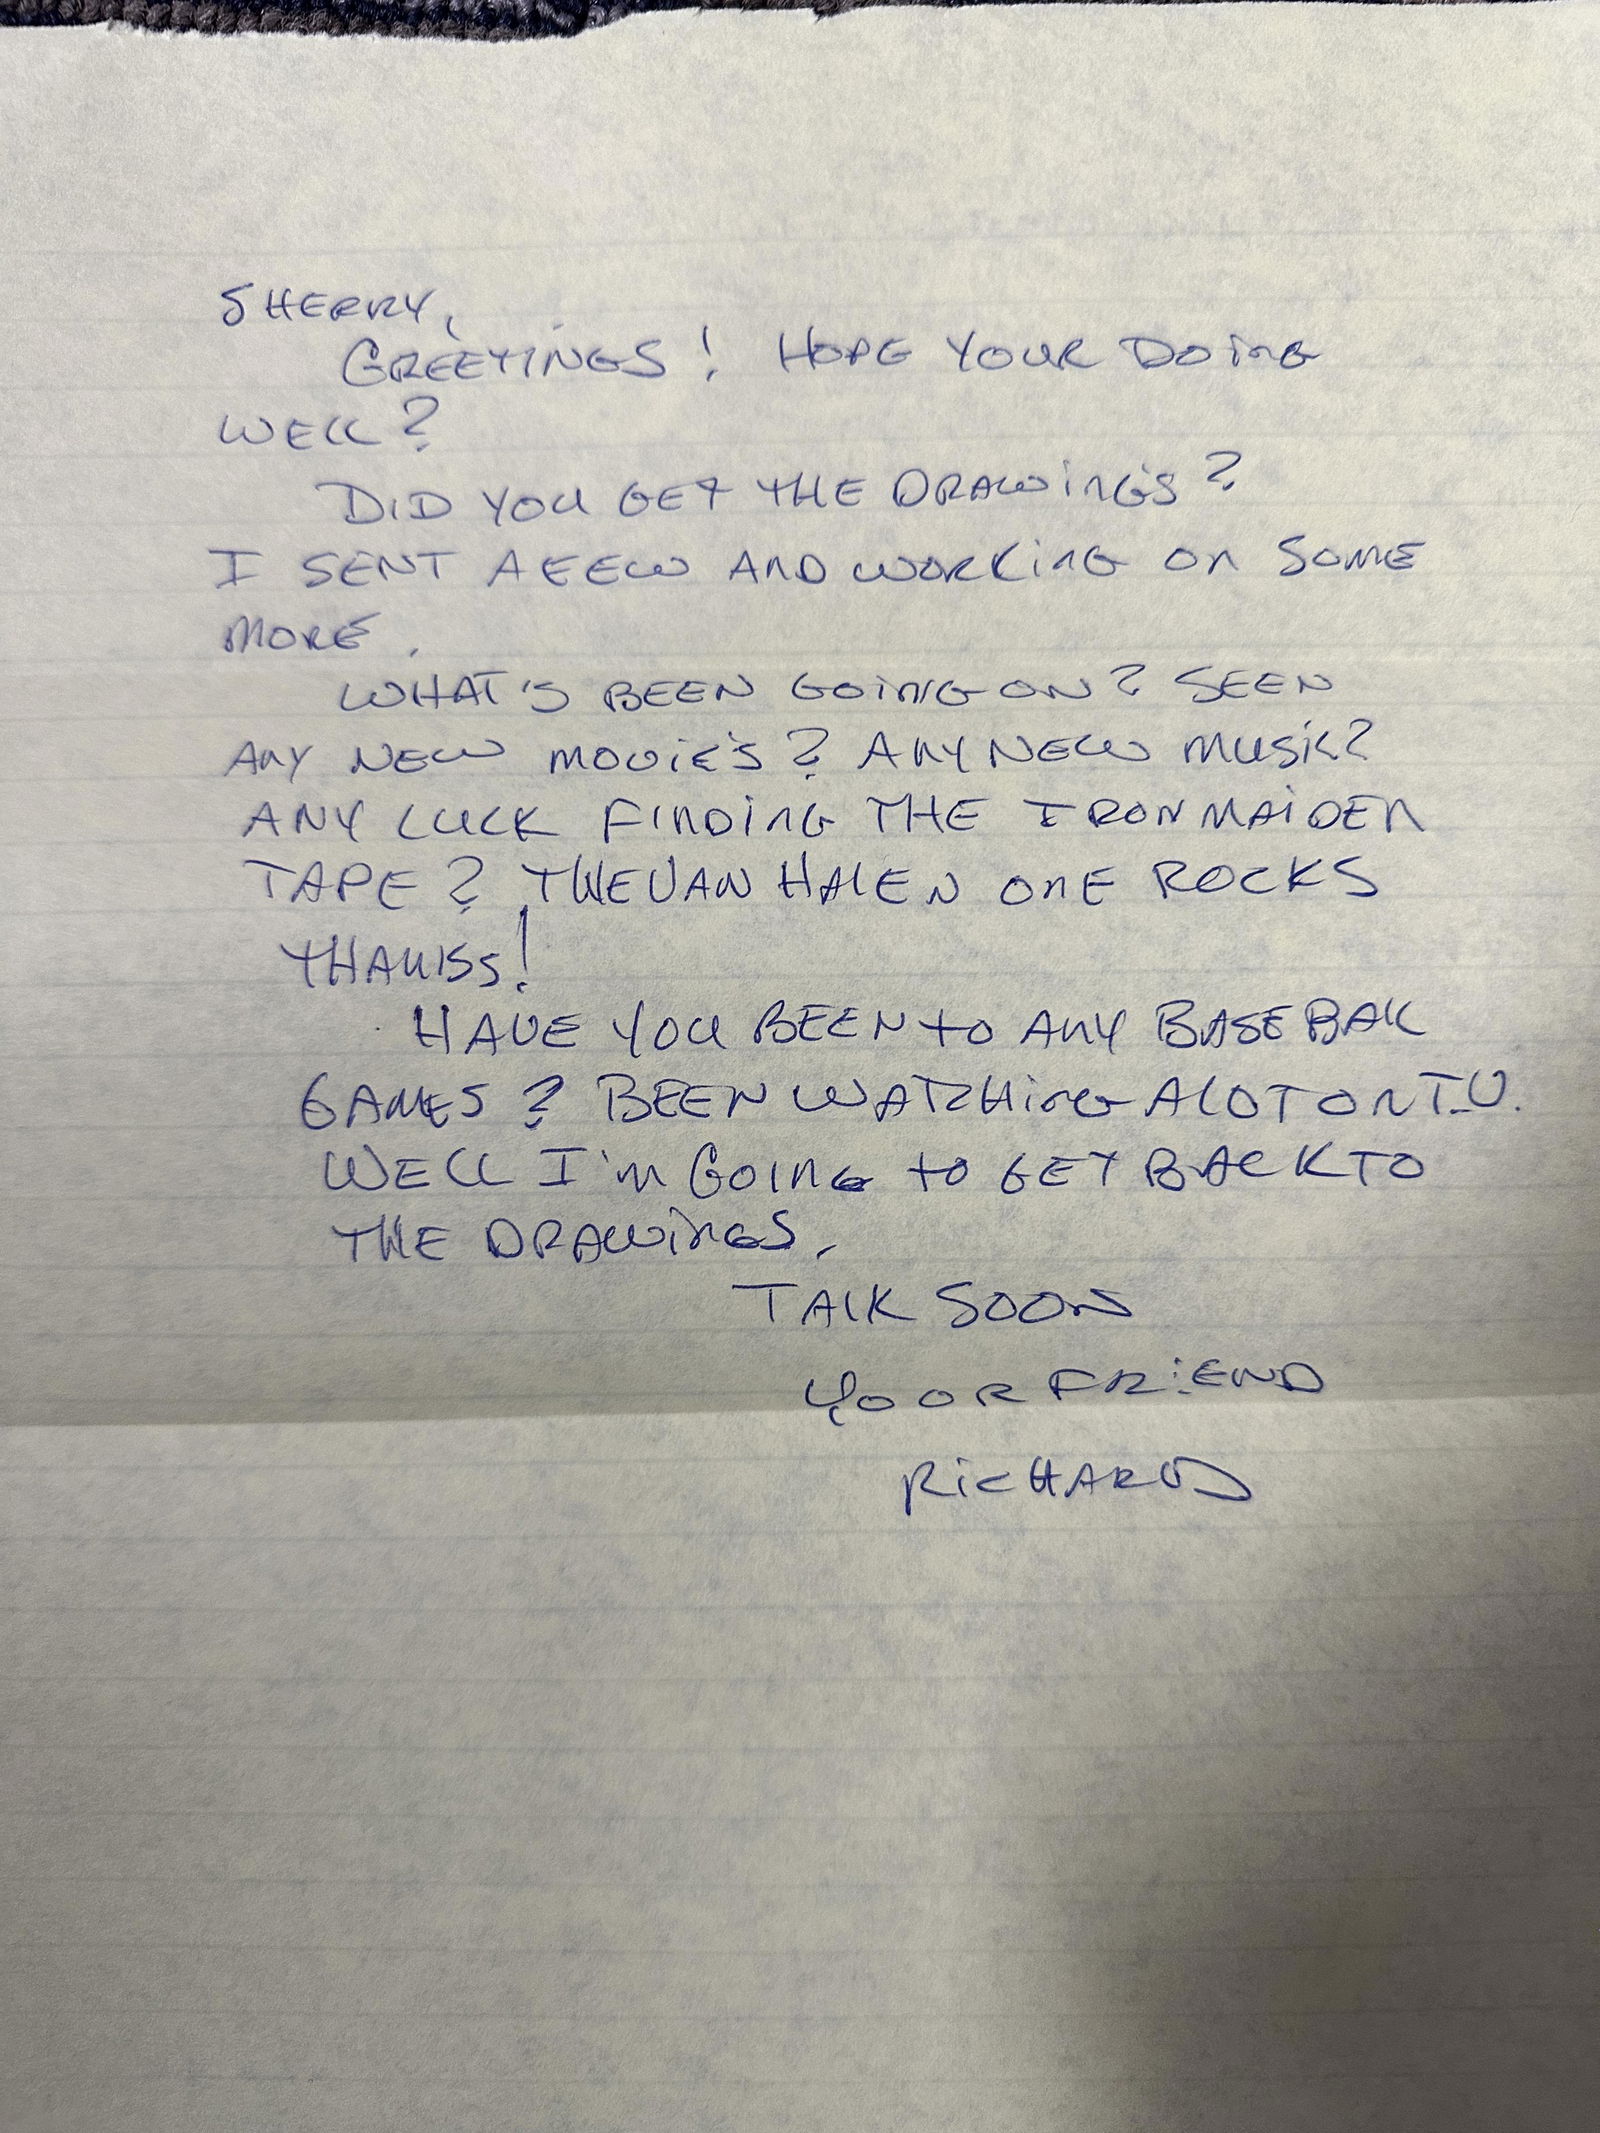 SHERRY,
GREETINGS! HOPE YOUR DOING
WELL?
DID YOU GET THE DRAWINGS?
I SENT A FEW AND WORKING ON SOME
MORE.
WHAT'S BEEN GOING ON? SEEN
ANY NEW MOVIE'S? ANY NEW MUSIC?
ANY LUCK FINDING THE IRON MAIDEN
TAPE? THE VAN HALEN ONE ROCKS
THANKS!
HAVE YOU BEEN TO ANY BASEBALL
GAMES? BEEN WATCHING ALOT ON T.V.
WELL I'M GOING TO GET BACK TO
THE DRAWINGS.
TALK SOON
YOUR FRIEND
RICHARD